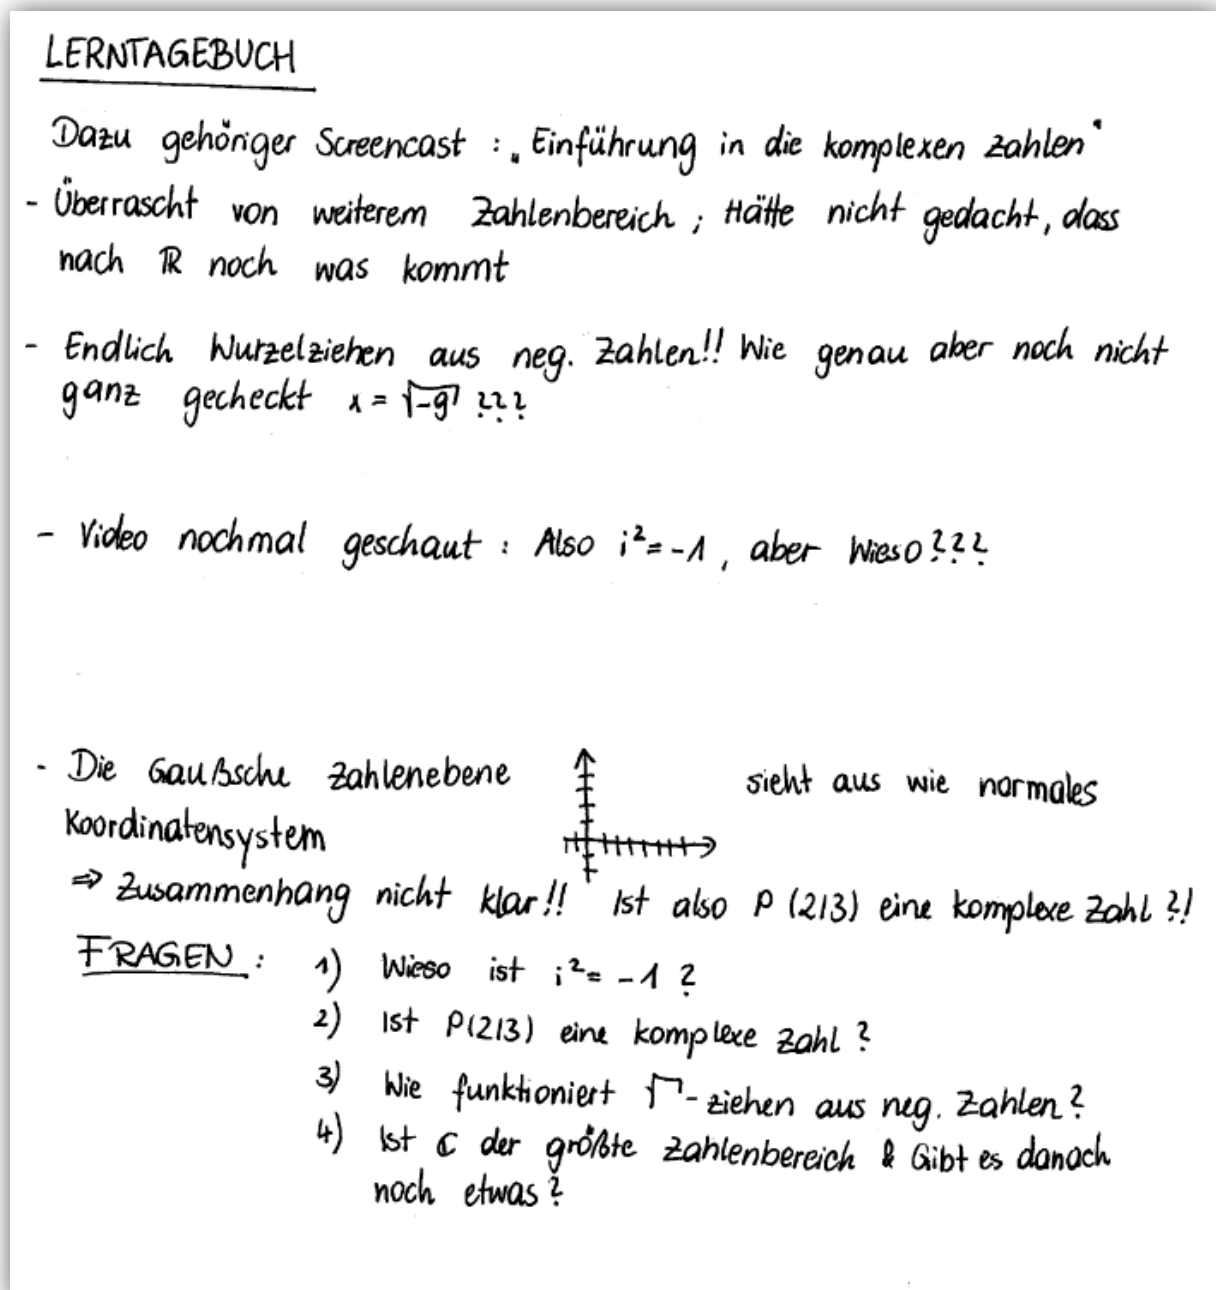 LERNTAGEBUCH
Dazu gehöriger Screencast : „Einführung in die komplexen Zahlen"
- Überrascht von weiterem Zahlenbereich ; Hätte nicht gedacht, dass
nach ℝ noch was kommt
- Endlich Wurzelziehen aus neg. Zahlen!! Wie genau aber noch nicht
ganz gecheckt x = √-9 ???
- Video nochmal geschaut : Also i² = -1 , aber Wieso???
- Die Gaußsche Zahlenebene sieht aus wie normales
Koordinatensystem
⇒ Zusammenhang nicht klar!! Ist also P (2|3) eine komplexe Zahl ?!
FRAGEN : 1) Wieso ist i² = -1 ?
2) Ist P(2|3) eine komplexe Zahl ?
3) Wie funktioniert √ - ziehen aus neg. Zahlen?
4) Ist ℂ der größte Zahlenbereich & Gibt es danach
noch etwas?